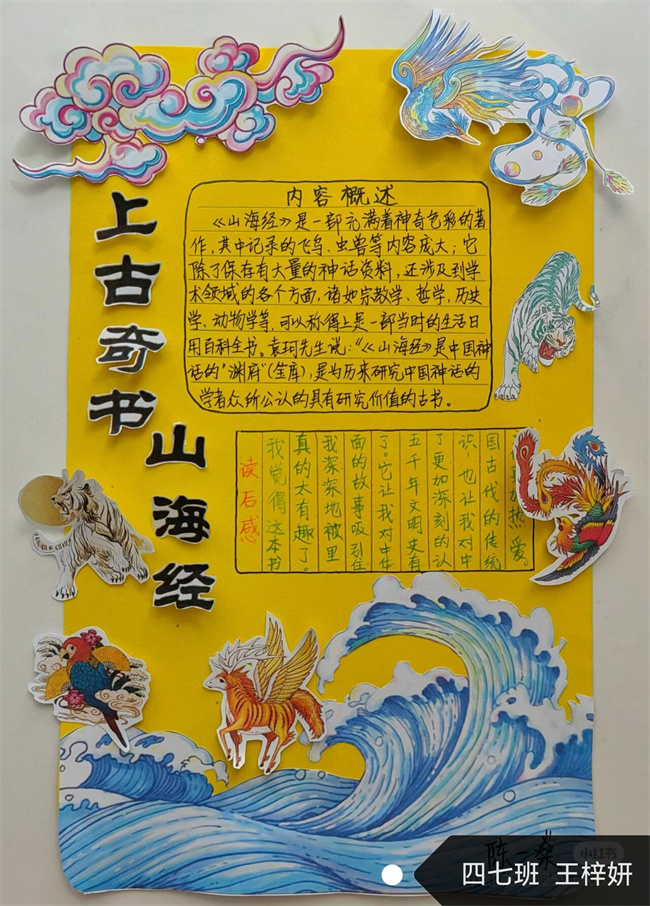 上古奇书
山海经
内容概述
《山海经》是一部充满着神奇色彩的著
作，其中记录的飞鸟、虫兽等内容成大；它
除了保存有大量的神话资料，还涉及到学
术领域的各个方面，诸如宗教学、哲学，历史
学、动物学等，可以称得上是一部当时的生活日
用百科全书。袁珂先生说：“《山海经》是中国神
话的“渊府”（库），是为历来研究中国神话的
学者众所公认的具有研究价值的古书。
读后感
我觉得这本书
真的太有趣了。
我深深地被里
面的故事吸引住
了。它让我对中华
五千年文明史有
了更加深刻的认
识，也让我对中
国古代的传统
加热爱。
陈一
四七班 王梓妍